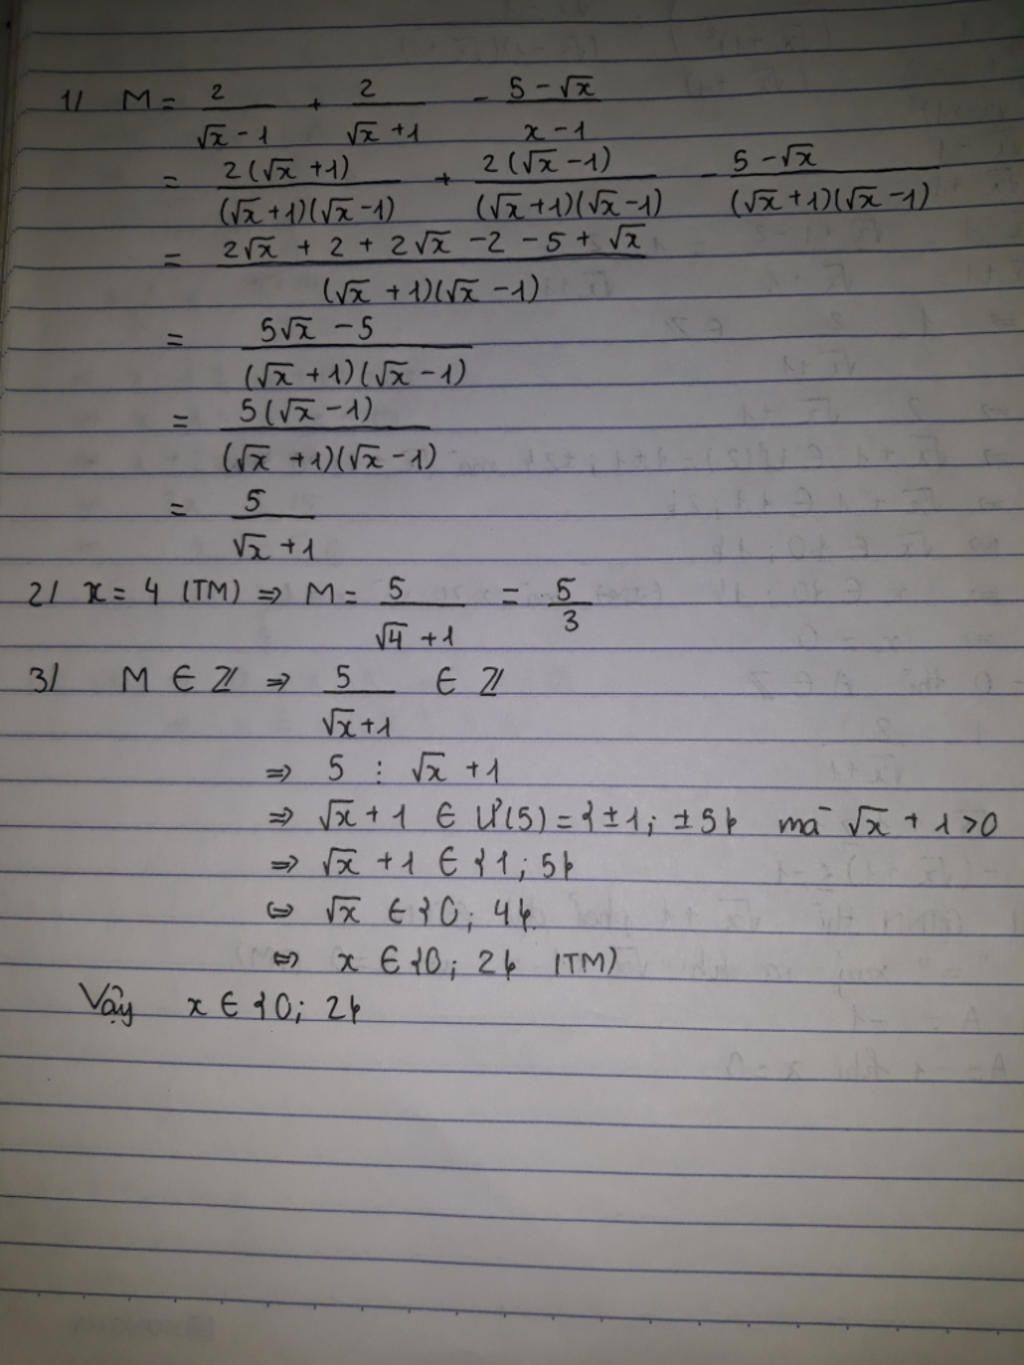 1/ M = 2/(√x - 1) + 2/(√x + 1) - (5 - √x)/(x - 1)
= 2(√x + 1)/((√x + 1)(√x - 1)) + 2(√x - 1)/((√x + 1)(√x - 1)) - (5 - √x)/((√x + 1)(√x - 1))
= (2√x + 2 + 2√x - 2 - 5 + √x)/((√x + 1)(√x - 1))
= (5√x - 5)/((√x + 1)(√x - 1))
= 5(√x - 1)/((√x + 1)(√x - 1))
= 5/(√x + 1)
2/ x = 4 (TM) => M = 5/(√4 + 1) = 5/3
3/ M ∈ Z => 5/(√x + 1) ∈ Z
=> 5 ⋮ √x + 1
=> √x + 1 ∈ Ư(5) = {±1; ±5} mà √x + 1 > 0
=> √x + 1 ∈ {1; 5}
<=> √x ∈ {0; 4}
<=> x ∈ {0; 2} (TM)
Vậy x ∈ {0; 2}